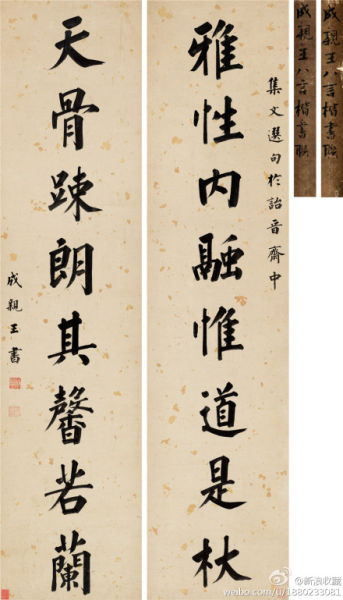 雅性内融惟道是杖
集文選句於詒晋齋中
天骨踈朗其馨若蘭
成親王書
成親王八言楷書聯
成親王八言楷書聯
@新浪收藏
weibo.com/u/1880233081